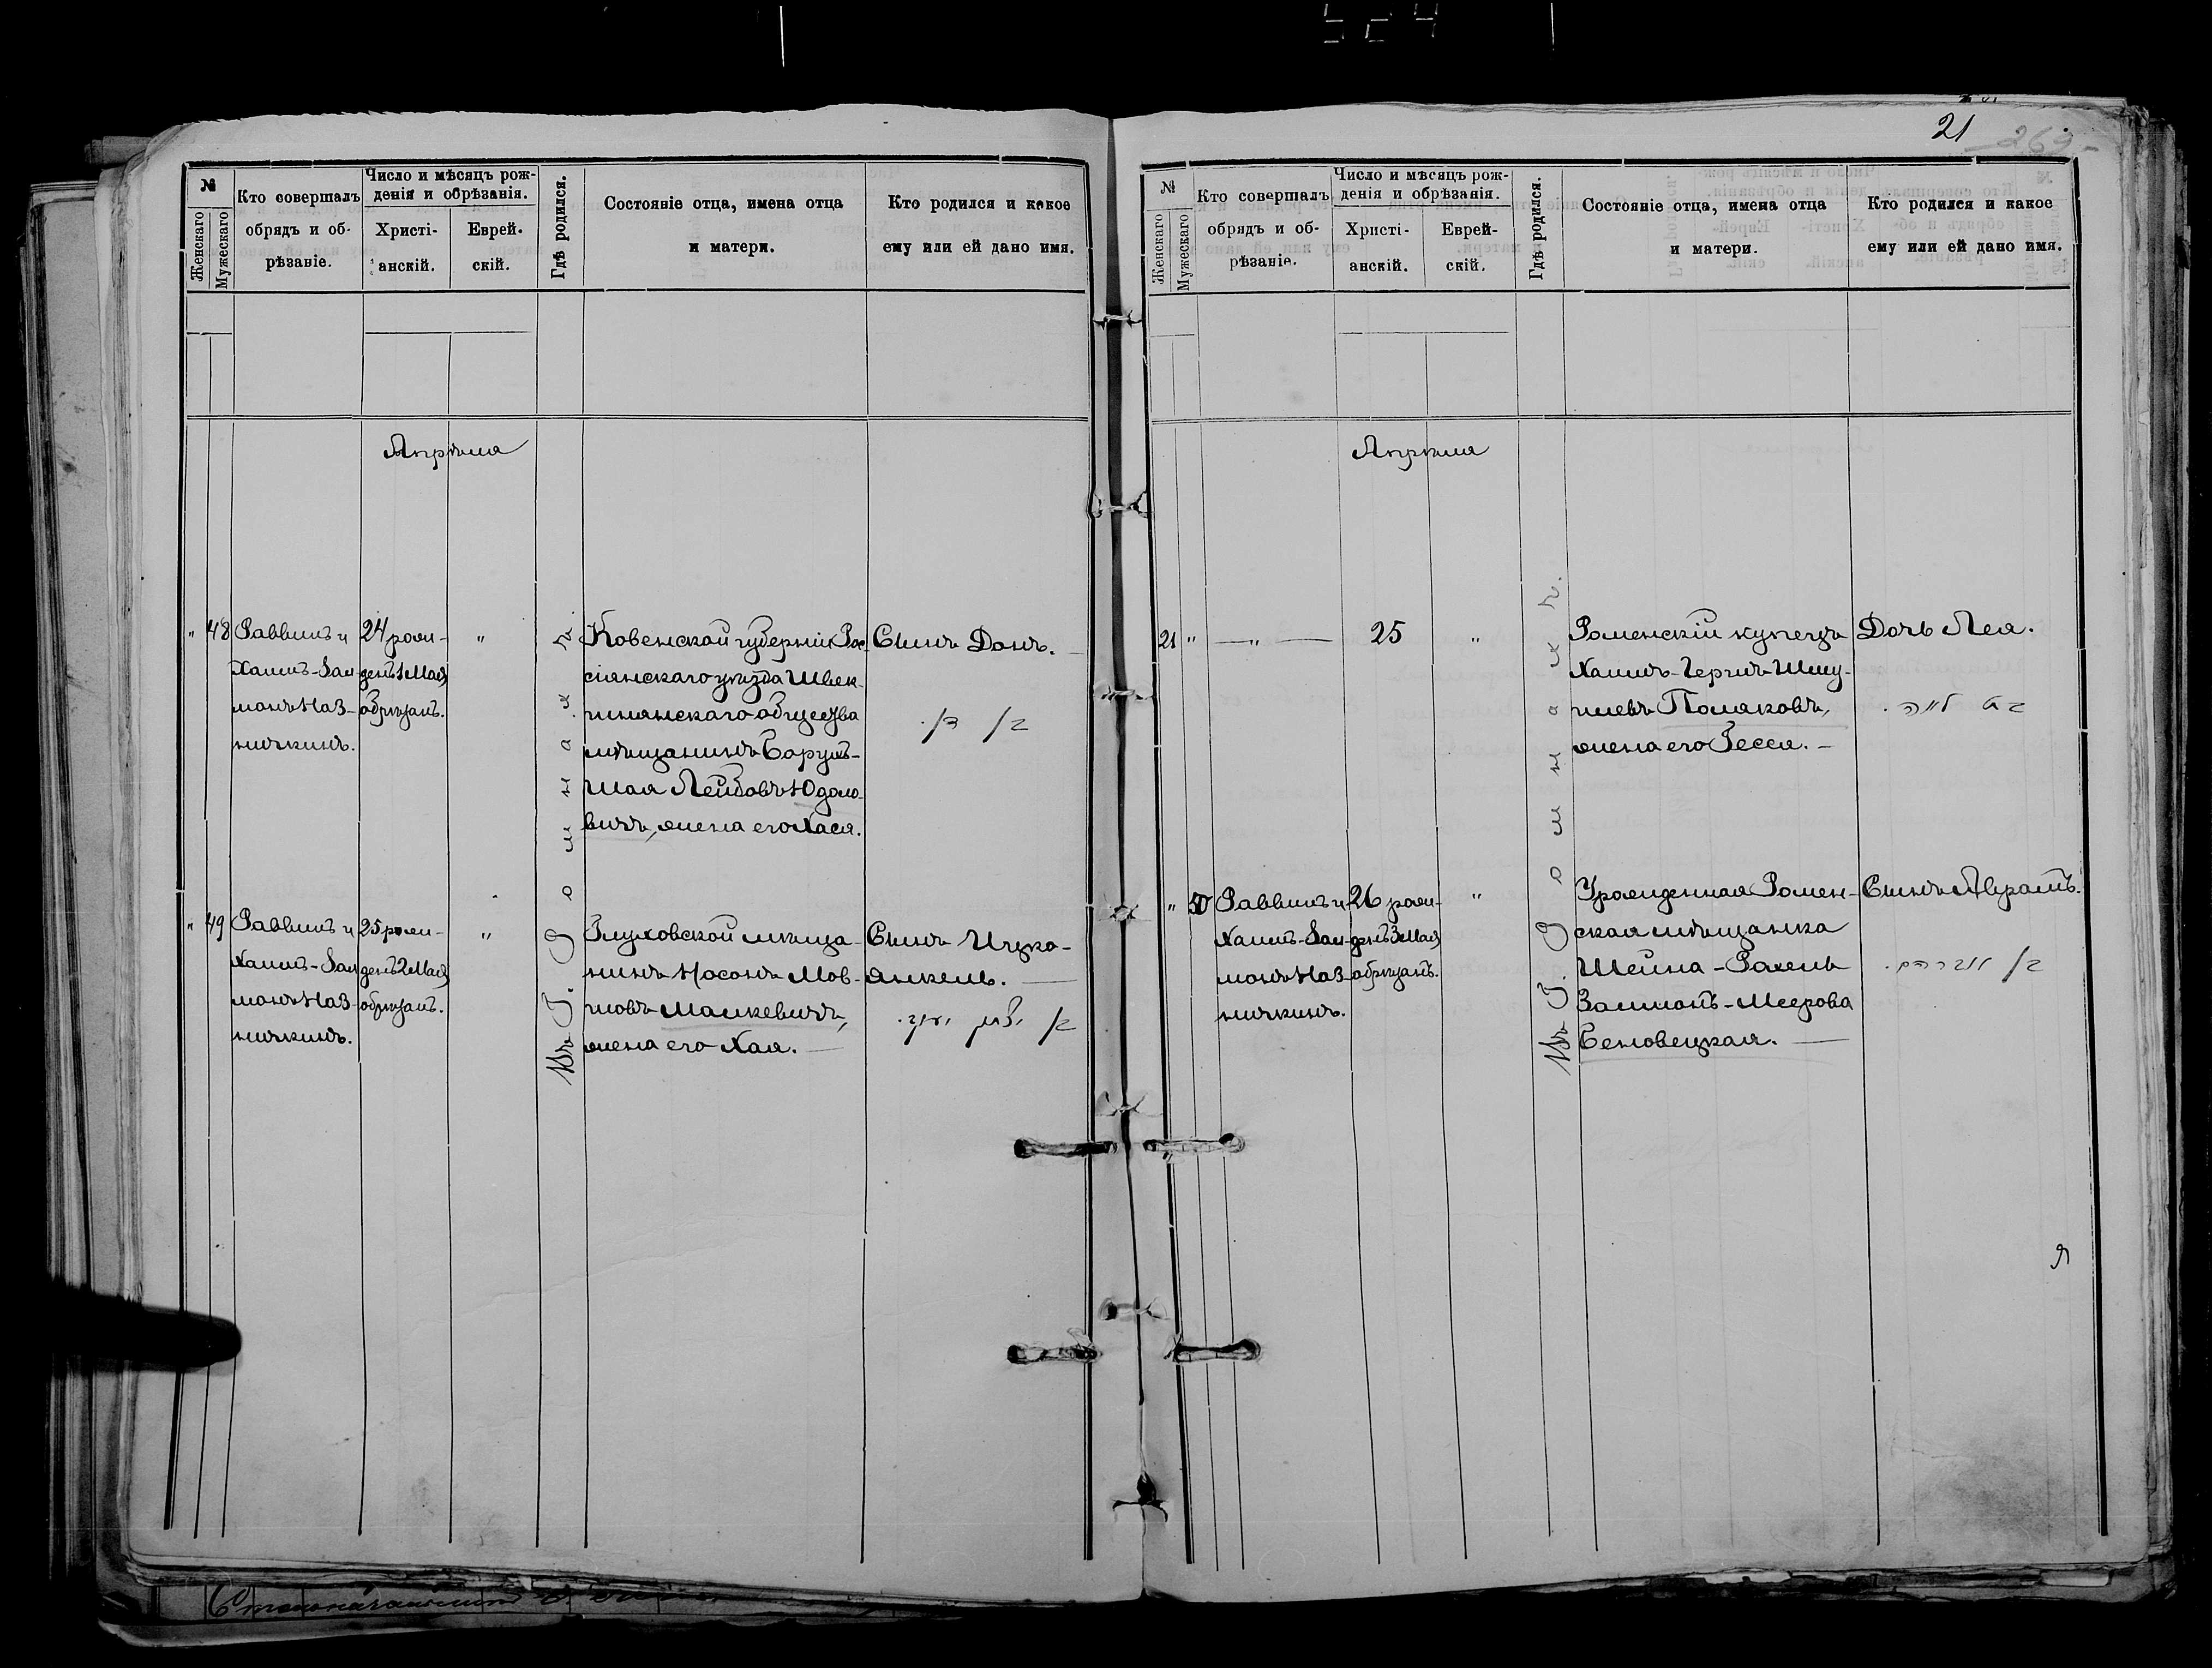 524
21
269
№
Женскаго
Мужескаго
Кто совершалъ
обрядъ и об-
рѣзаніе.
Число и мѣсяцъ рож-
денія и обрѣзанія.
Христі-
анскій.
Еврей-
скій.
Гдѣ родился.
Состояніе отца, имена отца
и матери.
Кто родился и какое
ему или ей дано имя.
Апрѣля
" 48
Раввинъ и
Хаимъ-Зал-
монъ Наз-
нич­кинъ.
24 рож-
денъ 1 Мая
обрѣзанъ.
"
Въ Г. Ромнахъ.
Ковенской губерніи Рос-
сіянскаго уѣзда Швек-
шнянскаго общества
мѣщанинъ Борухъ-
Шая Лейбовъ Юдоло-
вичъ, жена его Хася.
Сынъ Донъ.
בן דן.
" 49
Раввинъ и
Хаимъ-Зал-
монъ Наз-
ничкинъ.
25 рож-
денъ 2 Мая
обрѣзанъ.
"
Глуховской мѣща-
нинъ Носонъ Мов-
шовъ Малкевичъ,
жена его Хая.
Сынъ Ицко-
Янкель.
בן יצחק יעקב.
№
Женскаго
Мужескаго
Кто совершалъ
обрядъ и об-
рѣзаніе.
Число и мѣсяцъ рож-
денія и обрѣзанія.
Христі-
анскій.
Еврей-
скій.
Гдѣ родился.
Состояніе отца, имена отца
и матери.
Кто родился и какое
ему или ей дано имя.
Апрѣля
21 "
— " —
25
"
Въ Г. Ромнахъ.
Роменскій купецъ
Хаимъ-Гершъ Шму-
илевъ Поляковъ,
жена его Гесся.
Дочь Лея.
בת לאה.
" 50
Раввинъ и
Хаимъ-Зал-
монъ Наз-
ничкинъ.
26 рож-
денъ 3 Мая
обрѣзанъ.
"
Урожденная Ромен-
ская мѣщанка
Шейна-Рахель
Залмонъ-Меерова
Беловецкая.
Сынъ Абрамъ.
בן אברהם.